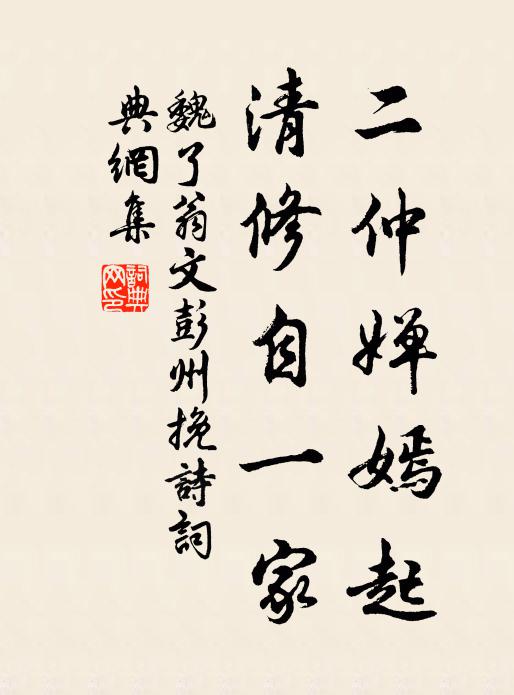 二仲婵嫣起
清修自一家
魏了翁文彭州挽詩詞
典網集
詞典
网印